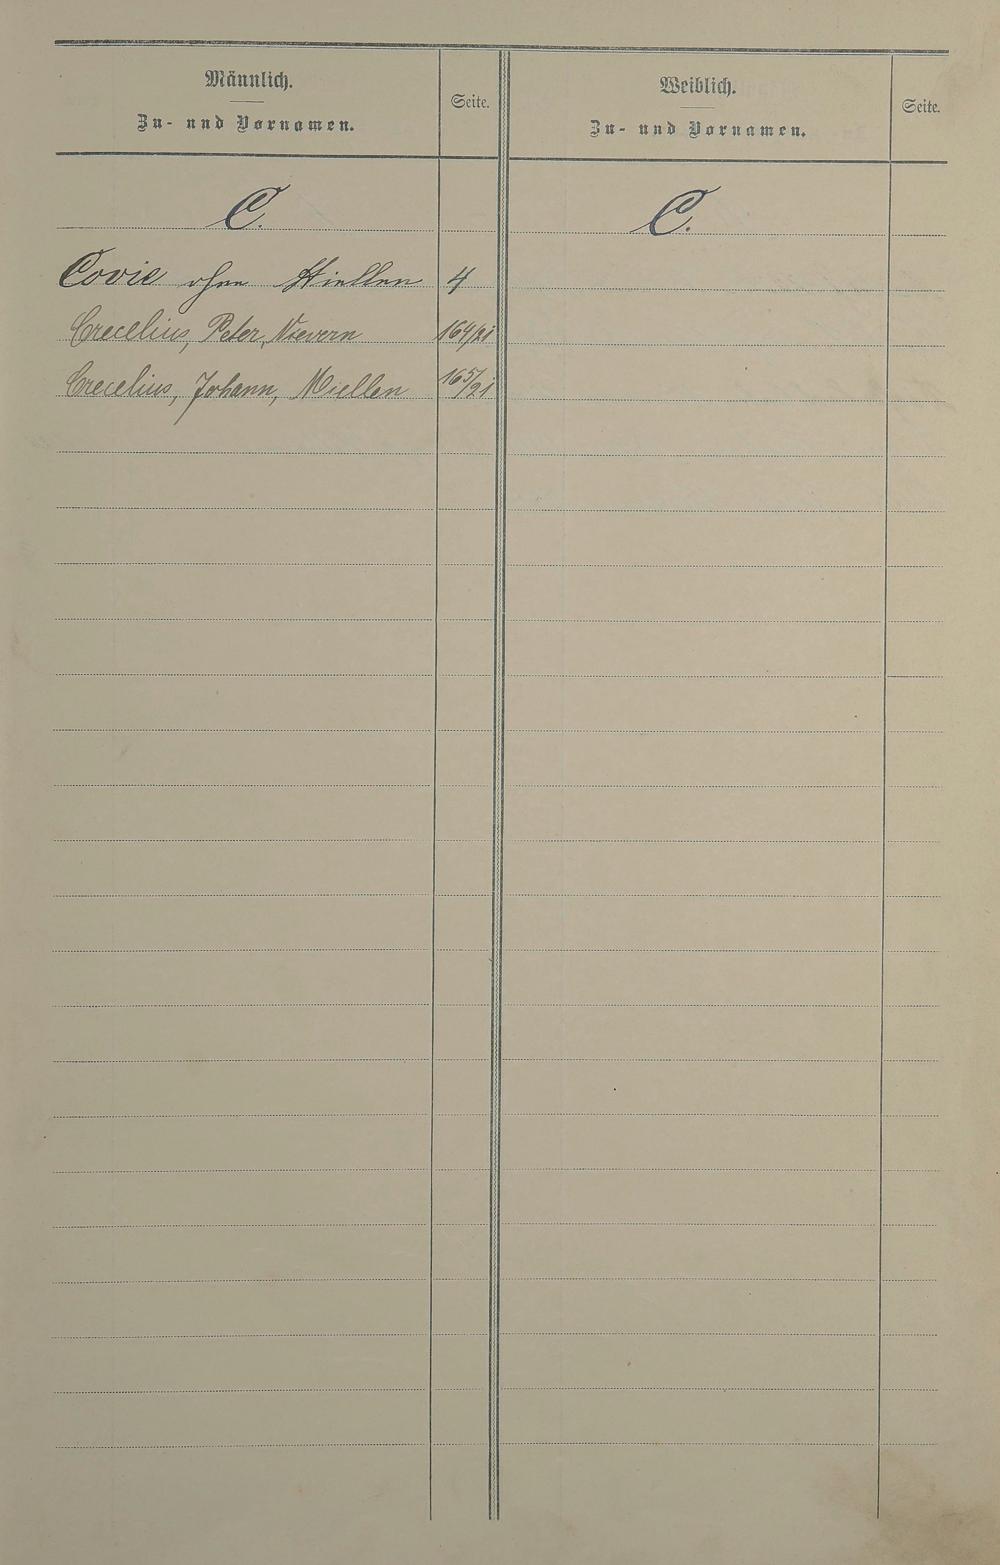 Männlich.
Zu- und Vornamen.
Seite.
Weiblich.
Zu- und Vornamen.
Seite.
C.
C.
Covie ohne 4
Crecelius, Peter, Nievern 164/21
Crecelius, Johann, Miellen 165/21